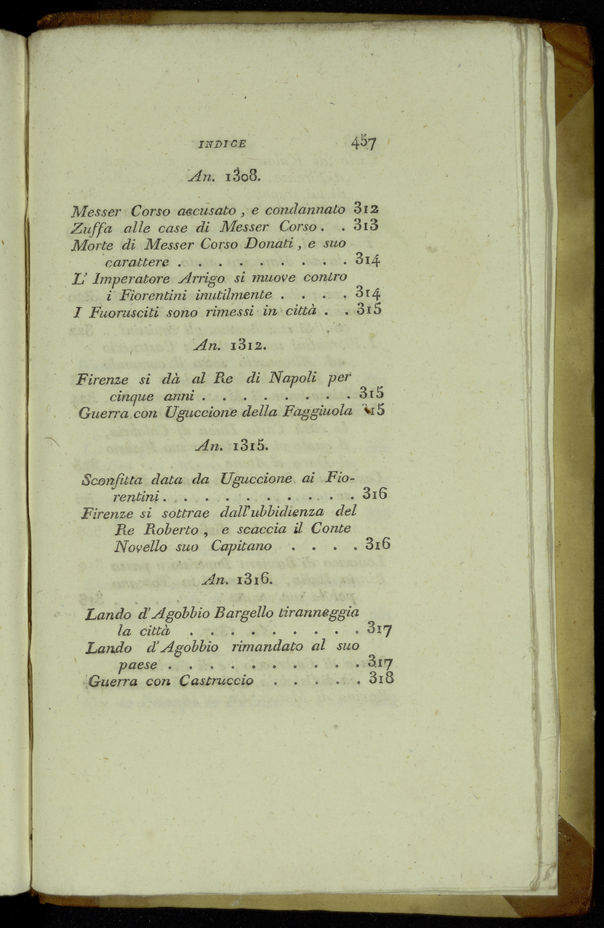 INDICE 457
An. 1308.
Messer Corso accusato, e condannato 312
Zuffa alle case di Messer Corso . . 313
Morte di Messer Corso Donati, e suo
carattere . . . . . . . . . 314
L' Imperatore Arrigo si muove contro
i Fiorentini inutilmente . . . . 314
I Fuorusciti sono rimessi in città . . 315
An. 1312.
Firenze si dà al Re di Napoli per
cinque anni . . . . . . . . 315
Guerra con Uguccione della Faggiuola 315
An. 1315.
Sconfitta data da Uguccione ai Fio-
rentini . . . . . . . . . . 316
Firenze si sottrae dall'ubbidienza del
Re Roberto, e scaccia il Conte
Novello suo Capitano . . . . 316
An. 1316.
Lando d'Agobbio Bargello tiranneggia
la città . . . . . . . . . 317
Lando d'Agobbio rimandato al suo
paese . . . . . . . . . . 317
Guerra con Castruccio . . . . . 318